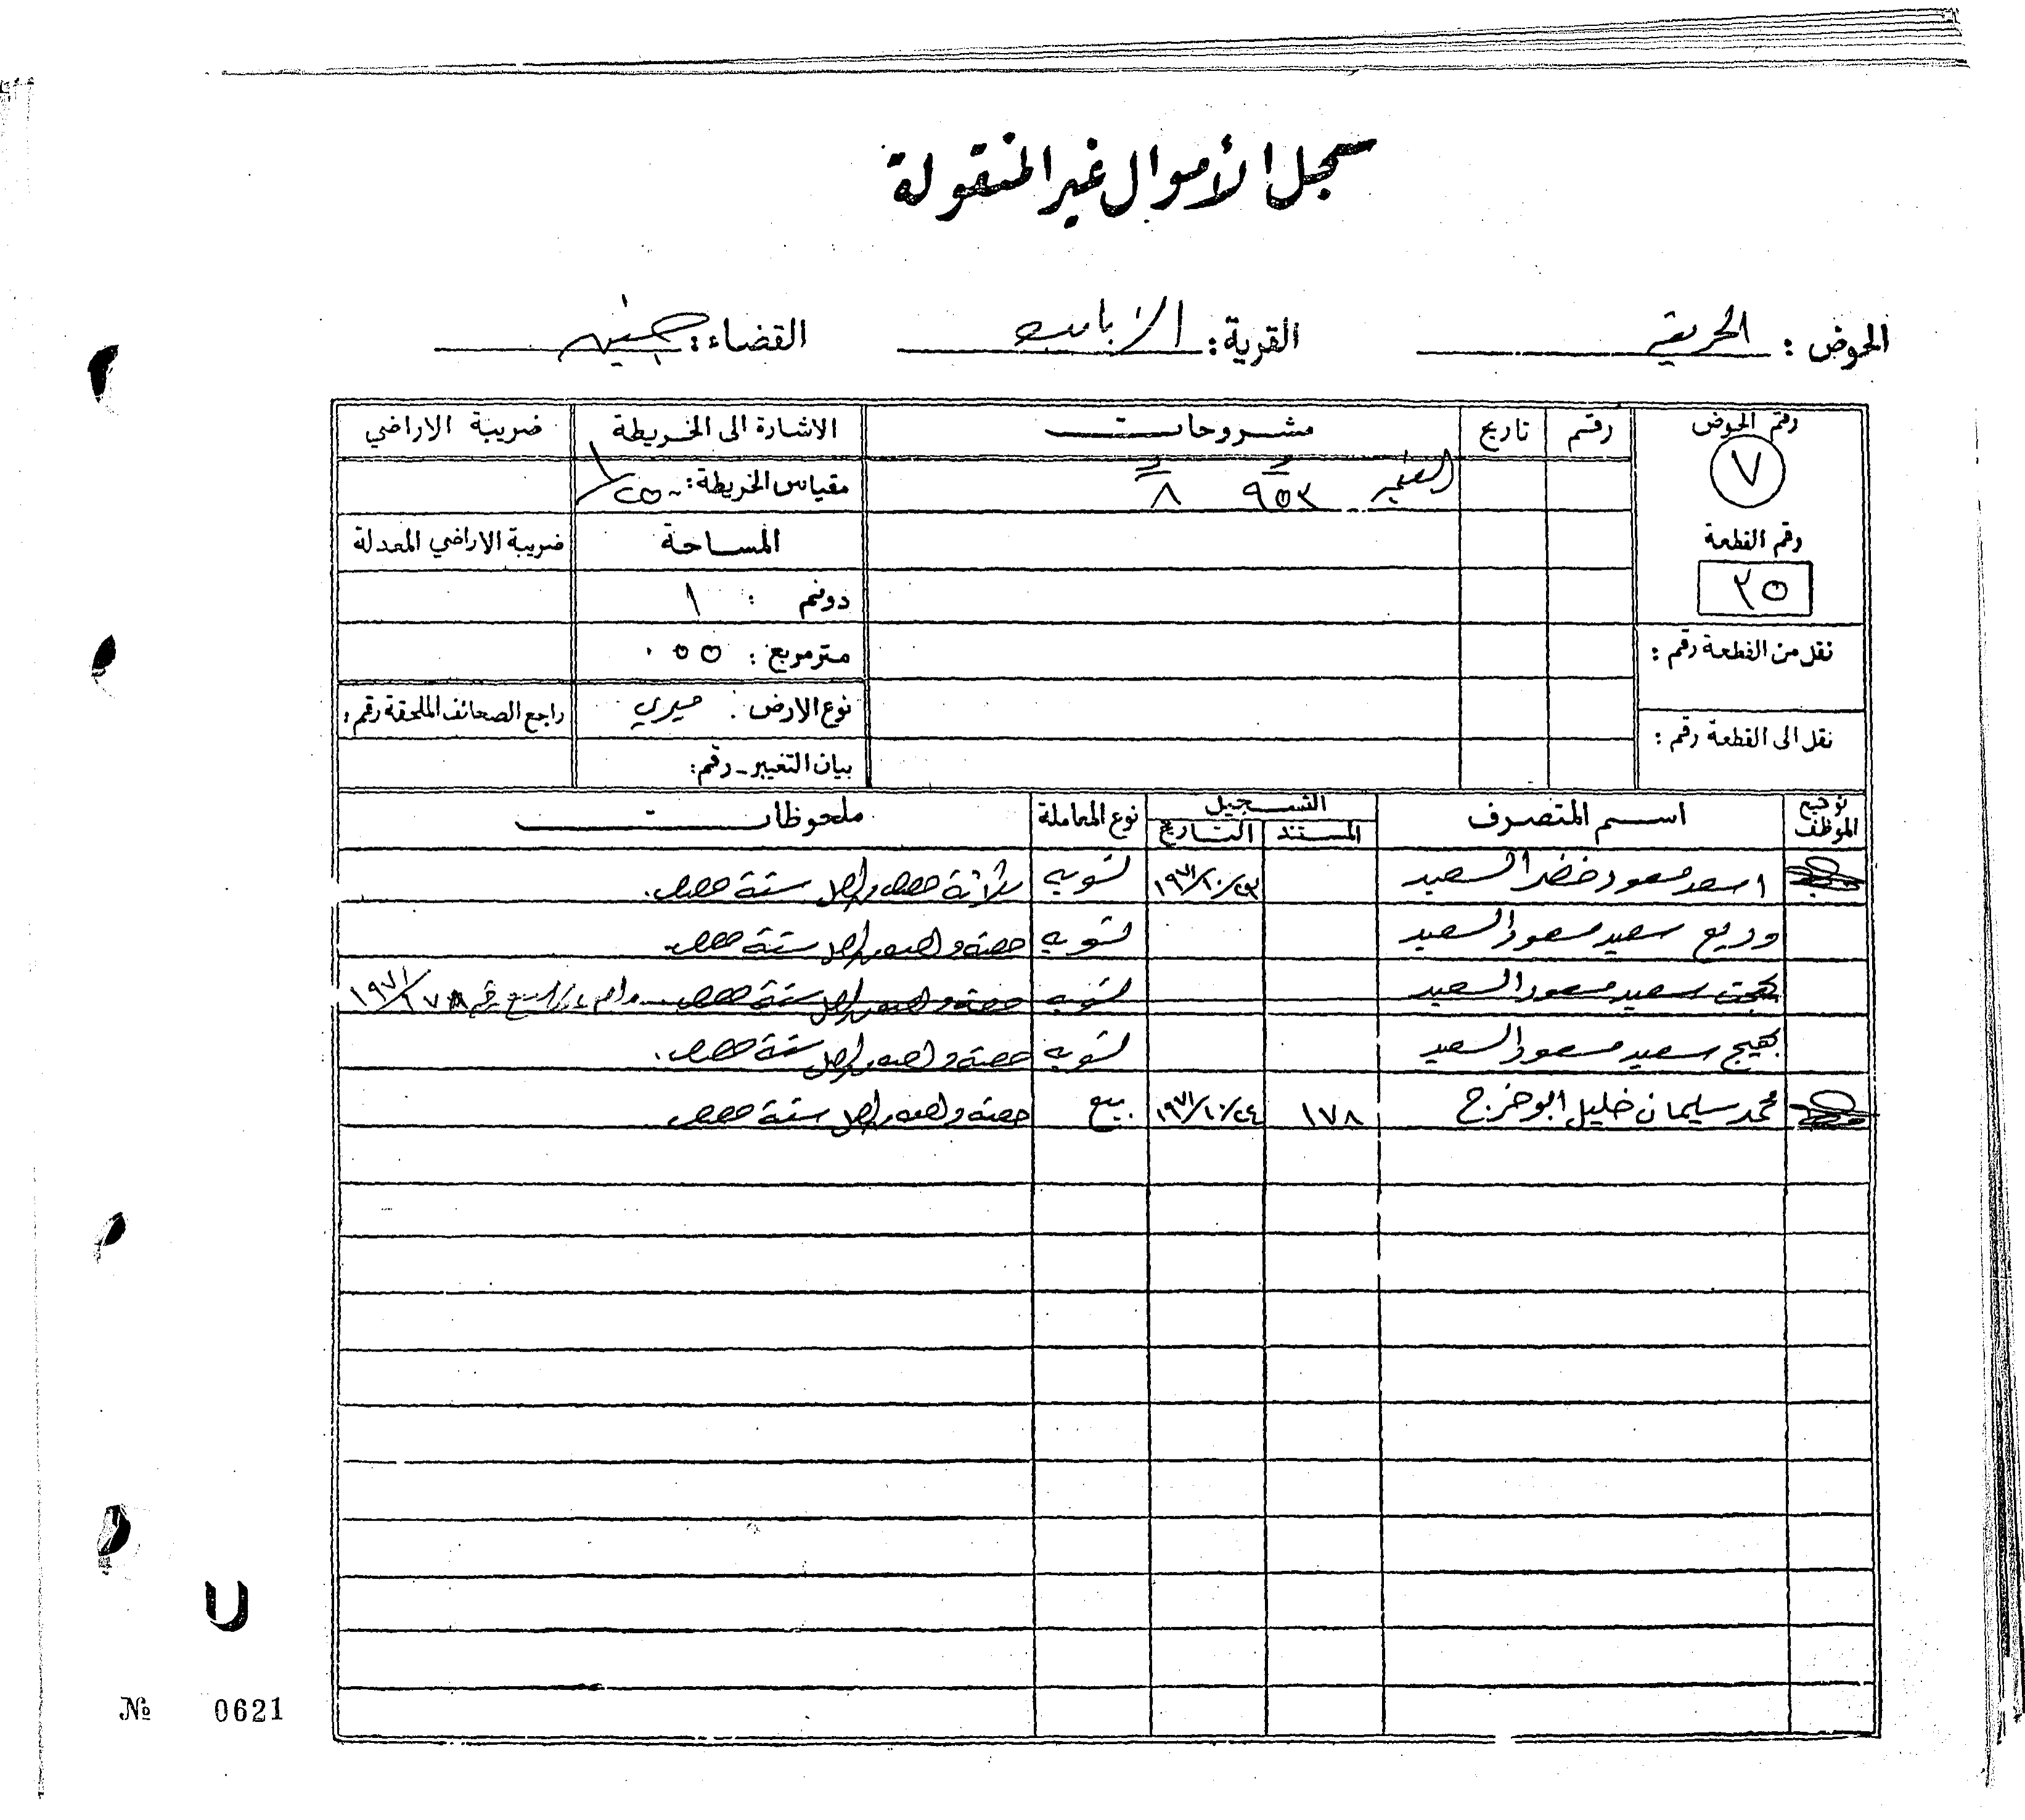 سجل الأموال غير المنقولة
الحوض : الحريقه القرية : الزبابده القضاء : جنين
رقم الحوض رقم تاريخ مشروحات الاشارة الى الخريطة ضريبة الاراضي
٧ مقياس الخريطة : ١/٢٥٠٠
٩٥٣ ٨
رقم القطعة المساحة ضريبة الاراضي المعدلة
٣٥ دونم : ١
متر مربع : ٠٥٥
نقل من القطعة رقم :
نوع الارض : ميري راجع الصحائف الملحقة رقم :
نقل الى القطعة رقم :
بيان التغيير - رقم :
توقيع الموظف اسم المتصرف التسجيل نوع المعاملة ملحوظات
المستند التاريخ
اسعد مسعود خضر السعيد ١٩٧١/١٠/٢٣ تسويه ثلاثة حصص من اصل ستة حصص .
وديع سعيد مسعود السعيد تسويه حصة ونصف من اصل ستة حصص .
بهجت سعيد مسعود السعيد تسويه حصة ونصف من اصل ستة حصص . رقم ١٩٧١/١٧٨
بهيج سعيد مسعود السعيد تسويه حصة ونصف من اصل ستة حصص .
محمد سليمان خليل ابو خرج ١٧٨ ١٩٧١/١٠/٢٤ بيع حصة ونصف من اصل ستة حصص
№ 0621